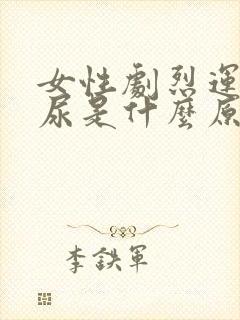 女性劇烈運
尿是什麼原
李鉄軍